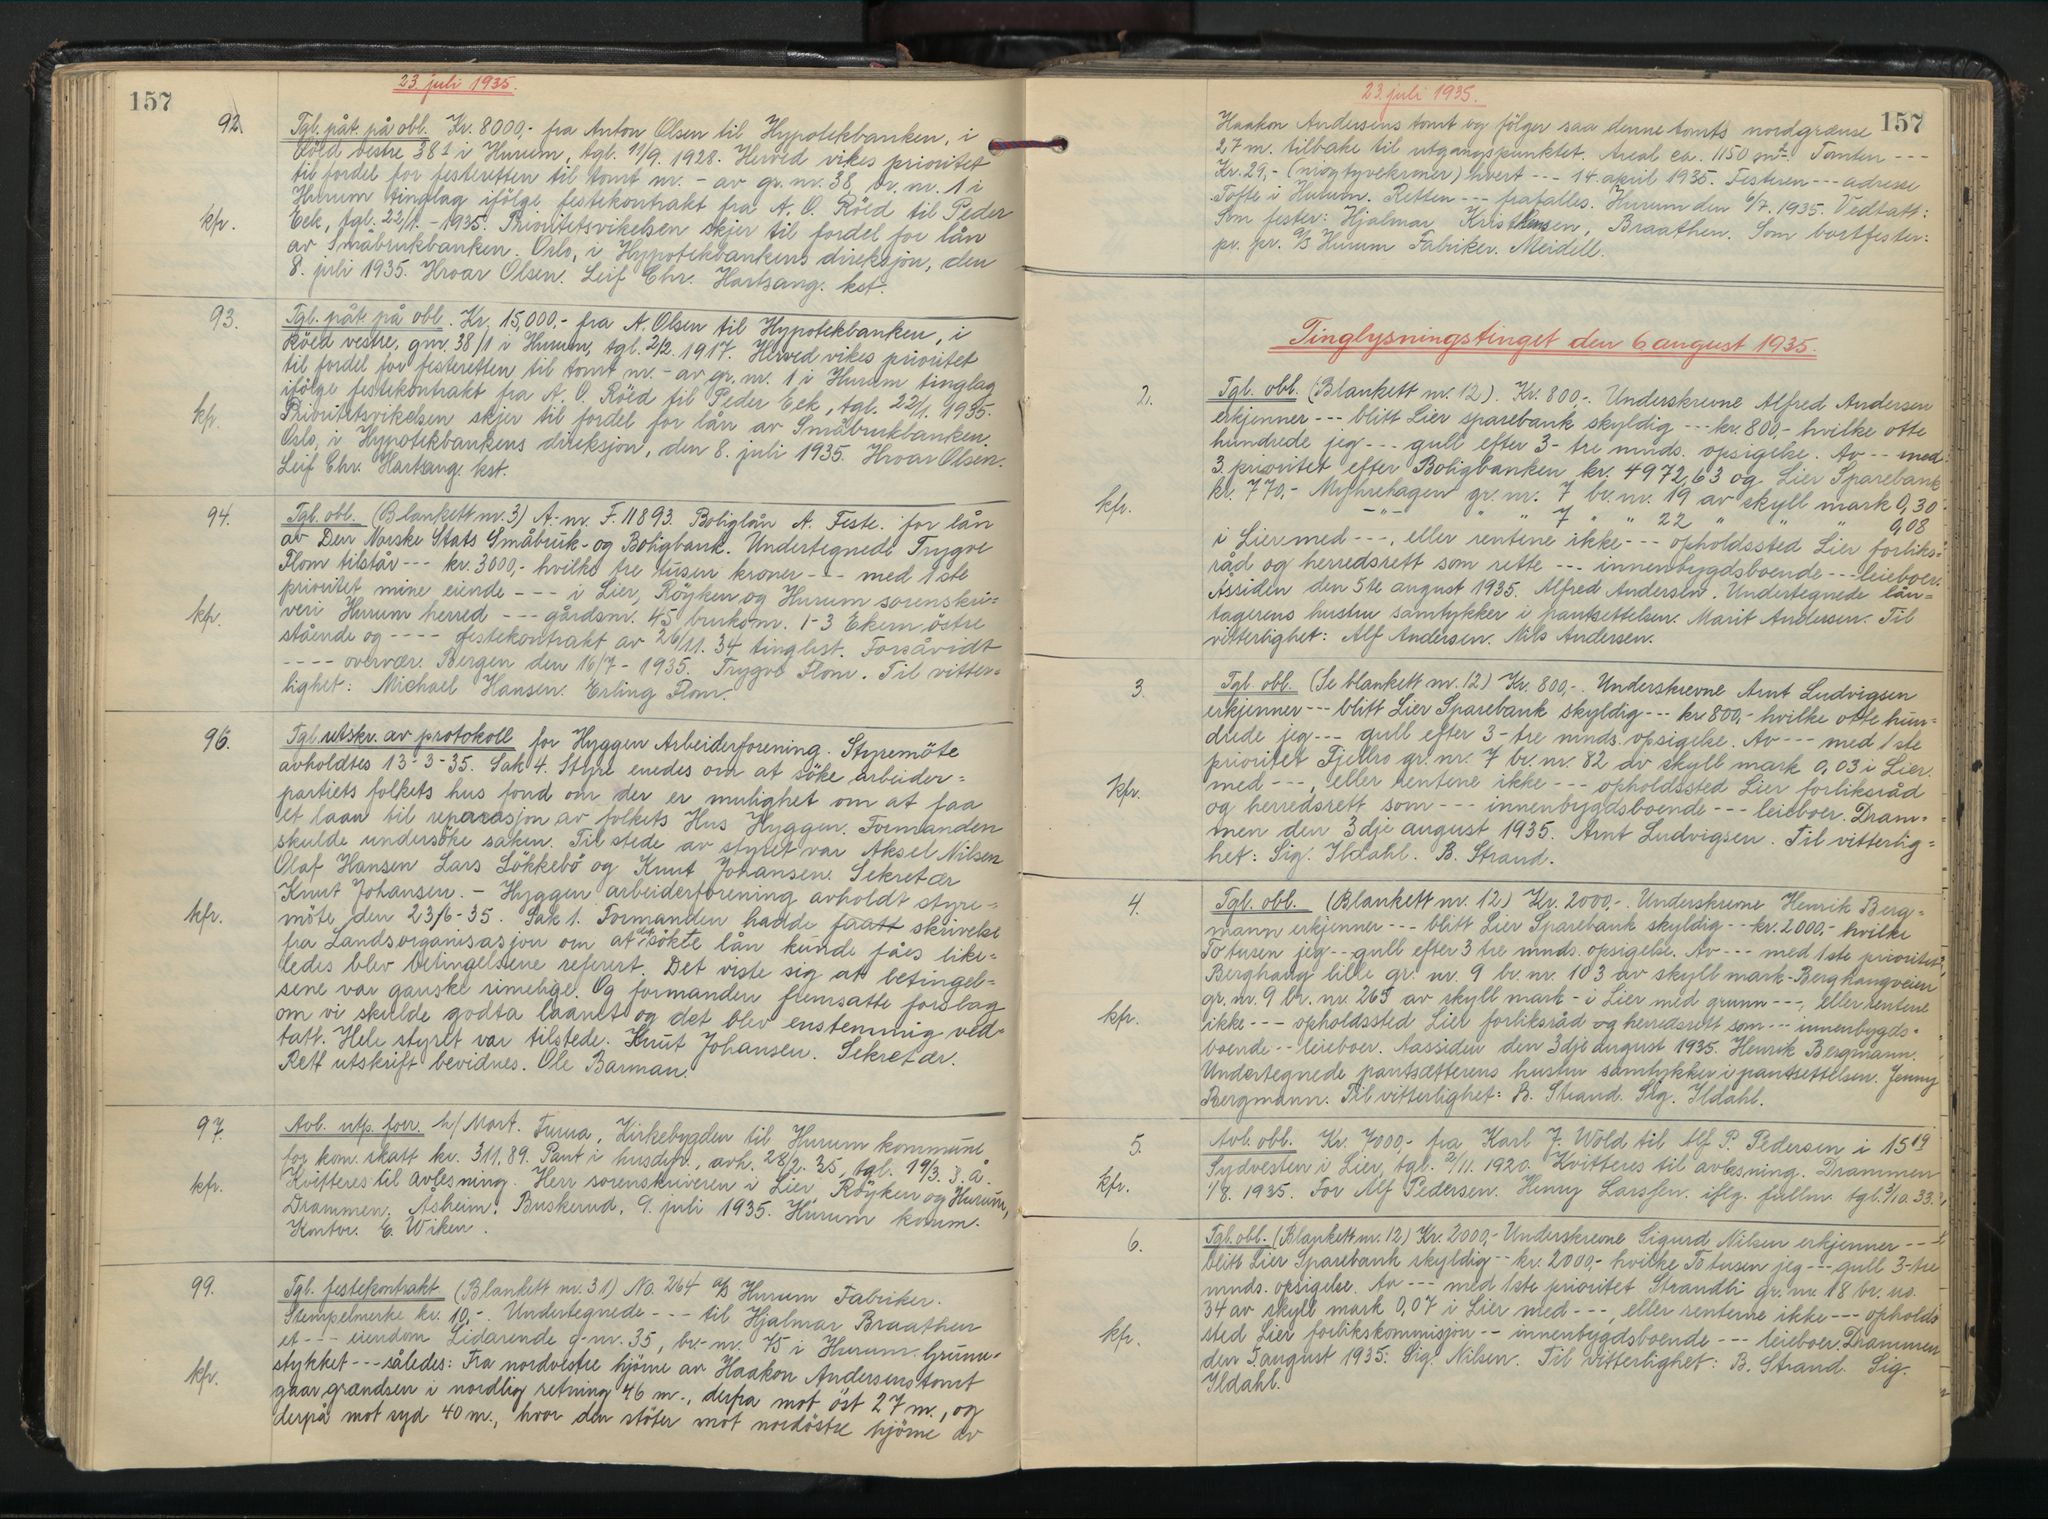 23. juli 1935.
157
92.
Tgl. påt. på obl. Kr. 8000,- fra Anton Olsen til Hypotekbanken, i
Röed vestre 38¹ i Hurum, tgl. 11/9. 1928. Herved vikes prioritet
til fordel for festeretten til tomt nr. - av gr. nr. 38, br. nr. 1 i
Hurum tinglag ifölge festekontrakt fra A. O. Röed til Peder
kfr.
Eek, tgl. 22/1. - 1935. Prioritetsvikelsen skjer til fordel for lån
av Småbrukbanken. Oslo, i Hypotekbankens direksjon, den
8. juli 1935. Hroar Olsen. Leif Chr. Hartsang. kst.
93.
Tgl. påt. på obl. Kr. 15,000,- fra A. Olsen til Hypotekbanken, i
Röed vestre, gnr. 38/1 i Hurum, tgl. 2/2. 1917. Herved vikes prioritet
til fordel for festeretten til tomt nr. - av gr. nr. 1 i Hurum tinglag
ifölge festekontrakt fra A. O. Röed til Peder Eek, tgl. 22/1. 1935.
kfr.
Prioritetsvikelsen skjer til fordel for lån av Småbrukbanken.
Oslo, i Hypotekbankens direksjon, den 8. juli 1935. Hroar Olsen.
Leif Chr. Hartsang. kst.
94.
Tgl. obl. (Blankett nr. 3) A.-nr. F. 11893. Boliglån A. Feste. for lån
av Den Norske Stats Småbruk- og Boligbank. Undertegnede Trygve
Flom tilstår --- kr. 3000,- hvilke tre tusen kroner --- med 1ste
prioritet mine eiende --- i Lier, Röyken og Hurum sorenskri=
kfr.
veri Hurum herred --- gårdsnr. 45 bruksnr. 1-3 Ekern, östre
stående og ---- festekontrakt av 26/11. 34 tinglest. Forsåvidt
---- overvær. Bergen den 16/7 - 1935. Trygve Flom. Til vitter=
lighet: Michael Hansen. Erling Flom.
96.
Tgl. utskr. av protokoll for Hyggen Arbeiderforening. Styremöte
avholdtes 13-3-35. Sak 4. Styre enedes om at söke arbeider=
partiets folkets hus fond om der er mulighet om at faa
et laan til reparasjon av folkets Hus Hyggen. Formanden
skulde undersöke saken. Tilstede av styret var Aksel Nilsen
Olaf Hansen Lars Lökkebö og Knut Johansen. Sekretær
Knut Johansen. - Hyggen arbeiderforening avholdt styre=
kfr.
möte den 23/6-35. Sak 1. Formanden hadde faatt skrivelse
fra Landsorganisasjon om at det sökte lån kunde fåes like=
ledes blev betingelsene referert. Det viste sig at betingel=
sene var ganske rimelige. Og formanden fremsatte forslag
om vi skulde godta laanet og det blev enstemmig ved=
tatt. Hele styret var tilstede. Knut Johansen. Sekretær.
Rett utskrift bevidnes. Ole Barman.
97.
Avl. utp. forr. h/ Mart. Furua, Kirkebygden til Hurum kommune
for kom. skatt kr. 311,89. Pant i husdyr, avh. 28/2. 35, tgl. 19/3. s. å.
kfr.
Kvitteres til avlesning. Herr sorenskriveren i Lier, Röyken og Hurum,
Drammen. Asheim, Buskerud, 9. juli 1935. Hurum komm.
Kontor. E. Wiken.
99.
Tgl. festekontrakt (Blankett nr. 31) No. 264 a/s Hurum Fabriker.
Stempelmerke kr. 10,-. Undertegnede --- til Hjalmar Braathen
et --- eiendom Lidarende g-nr. 35, br.-nr. 45 i Hurum. Grunn=
kfr.
stykket --- således: Fra nordvestre hjörne av Haakon Andersens tomt
gaar grændsen i nordlig retning 46 m., derfra mot öst 27 m., og
derpå mot syd 40 m., hvor den stöter mot nordöstre hjörne av
23. juli 1935.
157
Haakon Andersens tomt og fölger saa denne tomts nordgrænse
27 m. tilbake til utgangspunktet. Areal ca. 1150 m². Tomten ---
Kr. 29,- (niogtyvekroner) hvert --- 14. april 1935. Festeren --- adresse
Tofte i Hurum. Retten --- frafalles. Hurum den 6/7. 1935. Vedtatt:
Som fester: Hjalmar Kristiansen, Braathen. Som bortfester:
pr. pr. a/s Hurum Fabriker. Meidell.
Tinglysningstinget den 6 august 1935.
2.
Tgl. obl. (Blankett nr. 12). Kr. 800,-. Underskrevne Alfred Andersen
erkjenner --- blitt Lier sparebank skyldig --- kr. 800,- hvilke otte
hundrede jeg --- gull efter 3-tre mnds. opsigelse. Av --- med
3. prioritet efter Boligbanken kr. 4972,63 og Lier Sparebank
kfr.
kr. 770,- Myhrehagen gr. nr. 7 br. nr. 19 av skyll mark 0,30
-"- " " 7 " " 22 " " " 0,08
i Lier med ---, eller rentene ikke --- opholdssted Lier forliks=
råd og herredsrett som rette --- innenbygdsboende --- leieboer.
Åssiden den 5te august 1935. Alfred Andersen. Undertegnede lån=
tagerens hustru samtykker i pantsettelsen. Marit Andersen. Til
vitterlighet: Alf Andersen. Nils Andersen.
3.
Tgl. obl. (Se blankett nr. 12) Kr. 800,-. Underskrevne Arnt Ludvigsen
erkjenner --- blitt Lier Sparebank skyldig --- kr 800,- hvilke otte hun=
drede jeg --- gull efter 3-tre mnds. opsigelse. Av --- med 1ste
prioritet Fjellro gr. nr. 7 br. nr. 82 av skyll mark 0,03 i Lier.
kfr.
med ---, eller rentene ikke --- opholdssted Lier forliksråd
og herredsrett som --- innenbygdsboende --- leieboer. Dram=
men den 3dje august 1935. Arnt Ludvigsen. Til vitterlig=
het: Sig. Ildahl. B. Strand.
4.
Tgl. obl. (Blankett nr. 12) Kr. 2000,-. Underskrevne Henrik Berg=
mann erkjenner --- blitt Lier Sparebank skyldig -- kr. 2000,- hvilke
To tusen jeg -- gull efter 3 tre mnds. opsigelse. Av --- med 1ste prioritet
Berghaug lille gr. nr. 9 br. nr. 103 av skyll mark - Berghaugveien
gr. nr. 9 br. nr. 265 av skyll mark - i Lier med grunn ---, eller rentene
kfr.
ikke --- opholdssted Lier forliksråd og herredsrett som --- innenbygds=
boende -- leieboer. Aassiden den 3dje august 1935. Henrik Bergmann.
Undertegnede pantsætterens hustru samtykker i pantsettelsen. Jenny
Bergmann. Til vitterlighet: B. Strand. Sig. Ildahl.
5.
Avl. obl. Kr. 7000,- fra Karl J. Wold til Alf P. Pedersen i 15¹⁹
Sydvesten i Lier, tgl. 2/11. 1920. Kvitteres til avlesning. Drammen
kfr.
1/8. 1935. For Alf Pedersen. Henry Larssen. iflg. fullm. tgl. 3/10. 33.
6.
Tgl. obl. (Blankett nr. 12) Kr. 2000,- Underskrevne Sigurd Nilsen erkjenner ---
blitt Lier Sparebank skyldig -- kr. 2000,- hvilke To tusen jeg --- gull 3-tre
mnds. opsigelse. Av --- med 1ste prioritet Strandli gr. nr. 18 br. nr.
34 av skyll mark 0,07 i Lier med ---, eller renterne ikke --- opholds
kfr.
sted Lier forlikskommisjon -- innenbygdsboende --- leieboer. Drammen
den 5 august 1935. Sig. Nilsen. Til vitterlighet: B. Strand. Sig.
Ildahl.